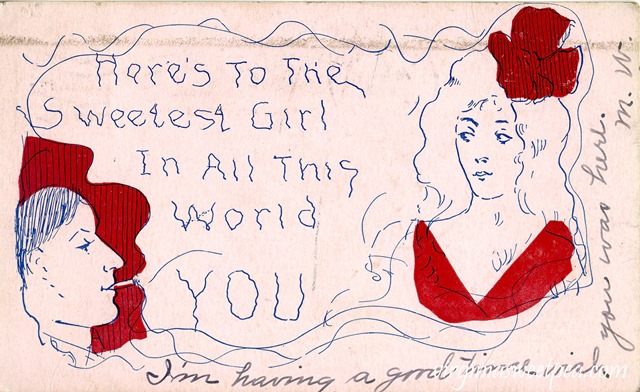 Here's To The
Sweetest Girl
In All This
World
YOU
I'm having a good time wish
you was here.
M. W.